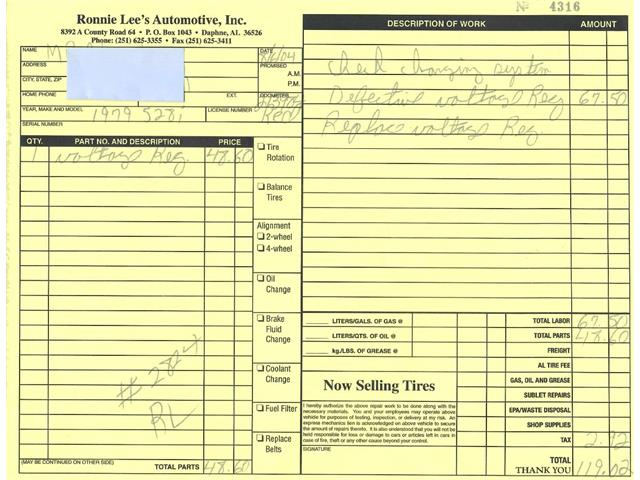 Nº 4316
Ronnie Lee's Automotive, Inc.
8392 A County Road 64 • P. O. Box 1043 • Daphne, AL 36526
Phone: (251) 625-3355 • Fax (251) 625-3411
NAME
DATE
8/6/04
ADDRESS
PROMISED
A.M.
P.M.
CITY, STATE, ZIP
HOME PHONE
EXT.
ODOMETER
YEAR, MAKE AND MODEL
1979 528i
LICENSE NUMBER
SERIAL NUMBER
QTY. PART NO. AND DESCRIPTION PRICE
1 voltage Reg. 48.60
Tire Rotation
Balance Tires
Alignment
2-wheel
4-wheel
Oil Change
Brake Fluid Change
Coolant Change
Fuel Filter
Replace Belts
# 2824
RL
(MAY BE CONTINUED ON OTHER SIDE) TOTAL PARTS 48.60
DESCRIPTION OF WORK AMOUNT
check charging system
Defective voltage Reg 67.50
Replace voltage Reg.
LITERS/GALS. OF GAS @ TOTAL LABOR 67.50
LITERS/QTS. OF OIL @ TOTAL PARTS 48.60
kg./LBS. OF GREASE @ FREIGHT
AL TIRE FEE
Now Selling Tires
GAS, OIL AND GREASE
SUBLET REPAIRS
EPA/WASTE DISPOSAL
SHOP SUPPLIES
TAX 2.92
I hereby authorize the above repair work to be done along with the
necessary materials. You and your employees may operate above
vehicle for purposes of testing, inspection, or delivery at my risk. An
express mechanics lien is acknowledged on above vehicle to secure
the amount of repairs thereto. It is also understood that you will not be
held responsible for loss or damage to cars or articles left in cars in
case of fire, theft or any other cause beyond your control.
SIGNATURE
TOTAL
THANK YOU 119.02